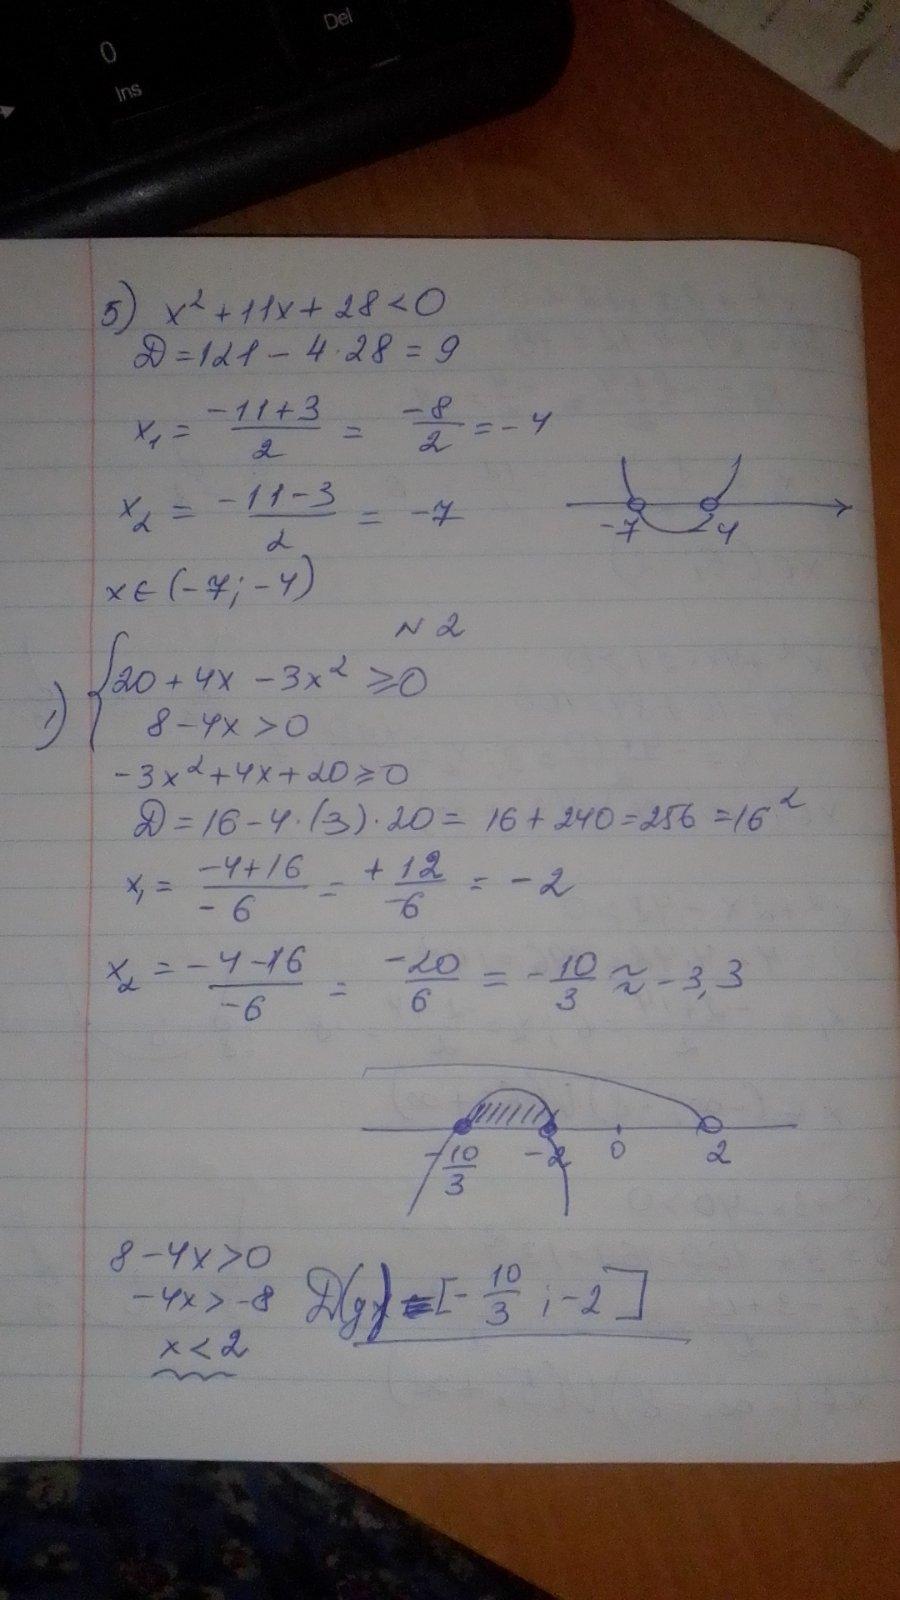 0
Ins
Del
5) x² + 11x + 28 < 0
D = 121 - 4·28 = 9
x₁ = (-11+3)/2 = -8/2 = -4
x₂ = (-11-3)/2 = -7
-7 -4
x ∈ (-7; -4)
N 2
1) { 20 + 4x - 3x² ≥ 0
8 - 4x > 0
-3x² + 4x + 20 ≥ 0
D = 16 - 4·(3)·20 = 16 + 240 = 256 = 16²
x₁ = (-4+16)/-6 = +12/-6 = -2
x₂ = (-4-16)/-6 = -20/6 = -10/3 ≈ -3,3
-10/3 -2 0 2
8 - 4x > 0
-4x > -8
x < 2
D(y) = [-10/3 ; -2]